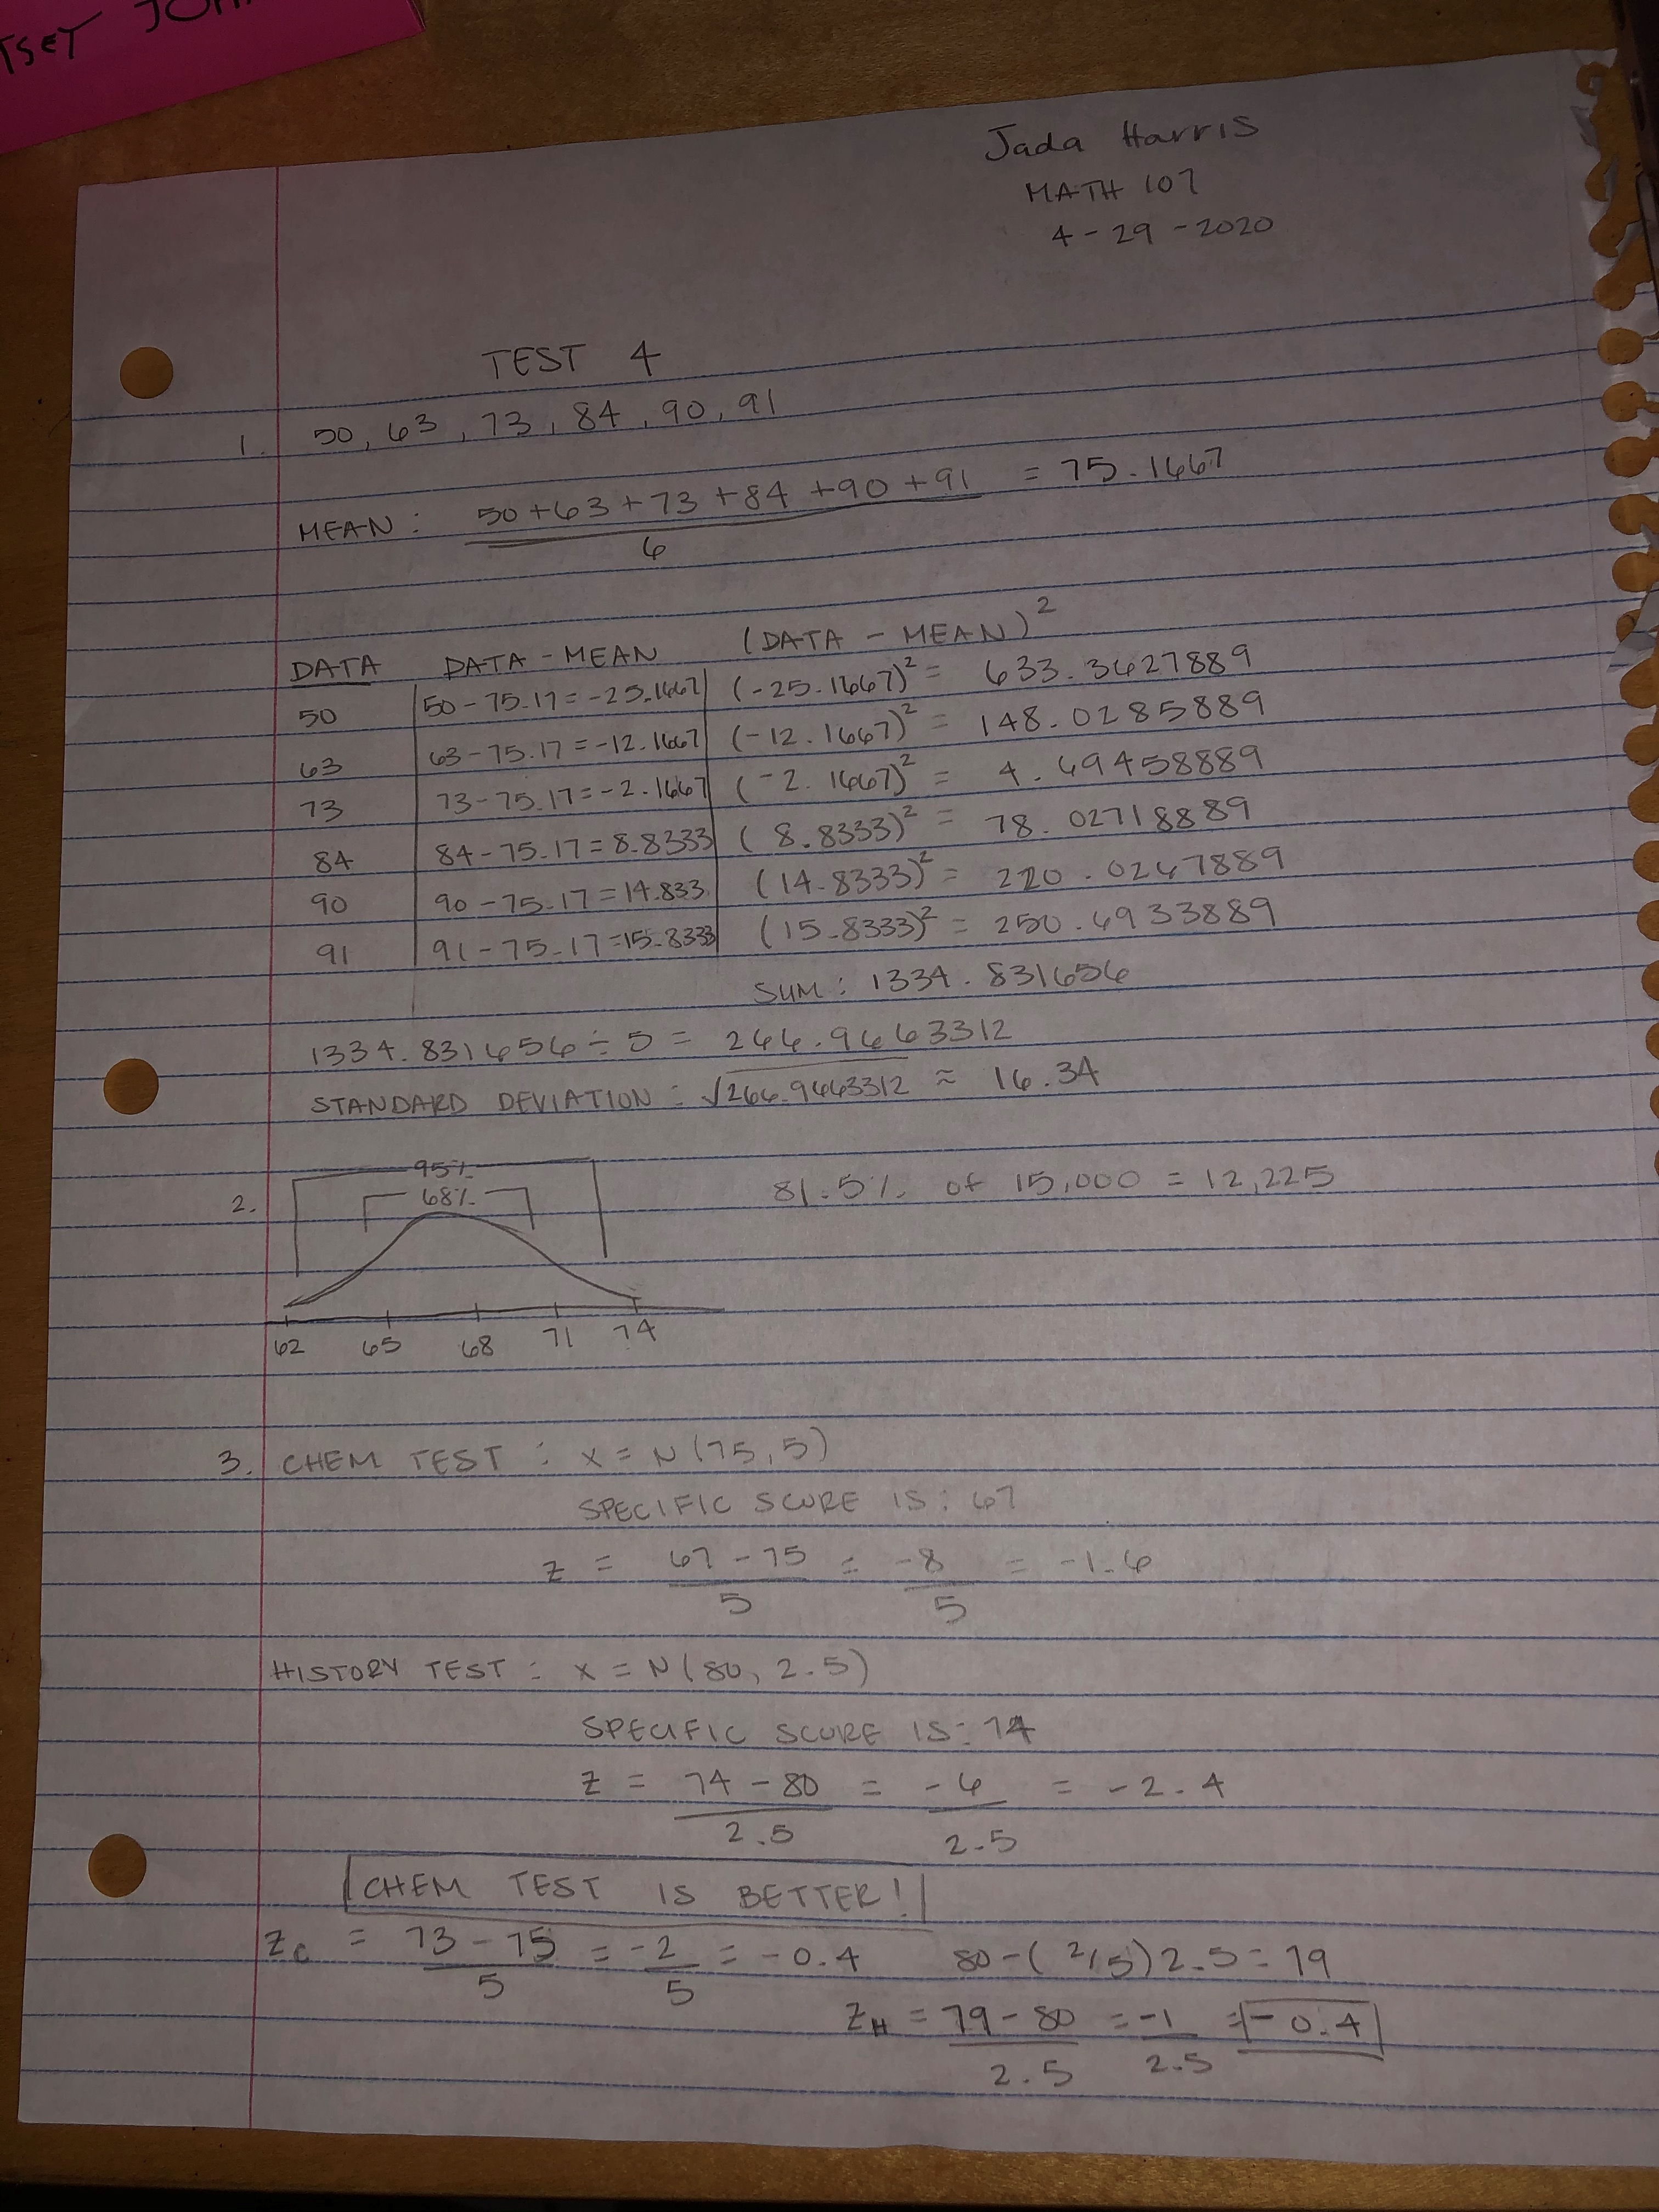 TSEY
Jada Harris
MATH 107
4-29-2020
TEST 4
1. 50, 63, 73, 84, 90, 91
MEAN: 50+63+73+84+90+91 = 75.1667
6
DATA DATA - MEAN (DATA - MEAN)²
50 50-75.17=-25.1667 (-25.1667)² = 633.3627889
63 63-75.17=-12.1667 (-12.1667)² = 148.0285889
73 73-75.17=-2.1667 (-2.1667)² = 4.69458889
84 84-75.17=8.8333 (8.8333)² = 78.02718889
90 90-75.17=14.833 (14.8333)² = 220.0267889
91 91-75.17=15.8333 (15.8333)² = 250.6933889
SUM: 1334.831656
1334.831656÷5 = 266.9663312
STANDARD DEVIATION: √266.9663312 ≈ 16.34
2. 95% 81.5% of 15,000 = 12,225
68%
62 65 68 71 74
3. CHEM TEST: X = N(75,5)
SPECIFIC SCORE IS: 67
z = 67-75 = -8 = -1.6
5 5
HISTORY TEST: X = N(80, 2.5)
SPECIFIC SCORE IS: 74
z = 74-80 = -6 = -2.4
2.5 2.5
CHEM TEST IS BETTER!
Zc = 73-75 = -2 = -0.4 80-(2/5)2.5=79
5 5
ZH = 79-80 = -1 = -0.4
2.5 2.5